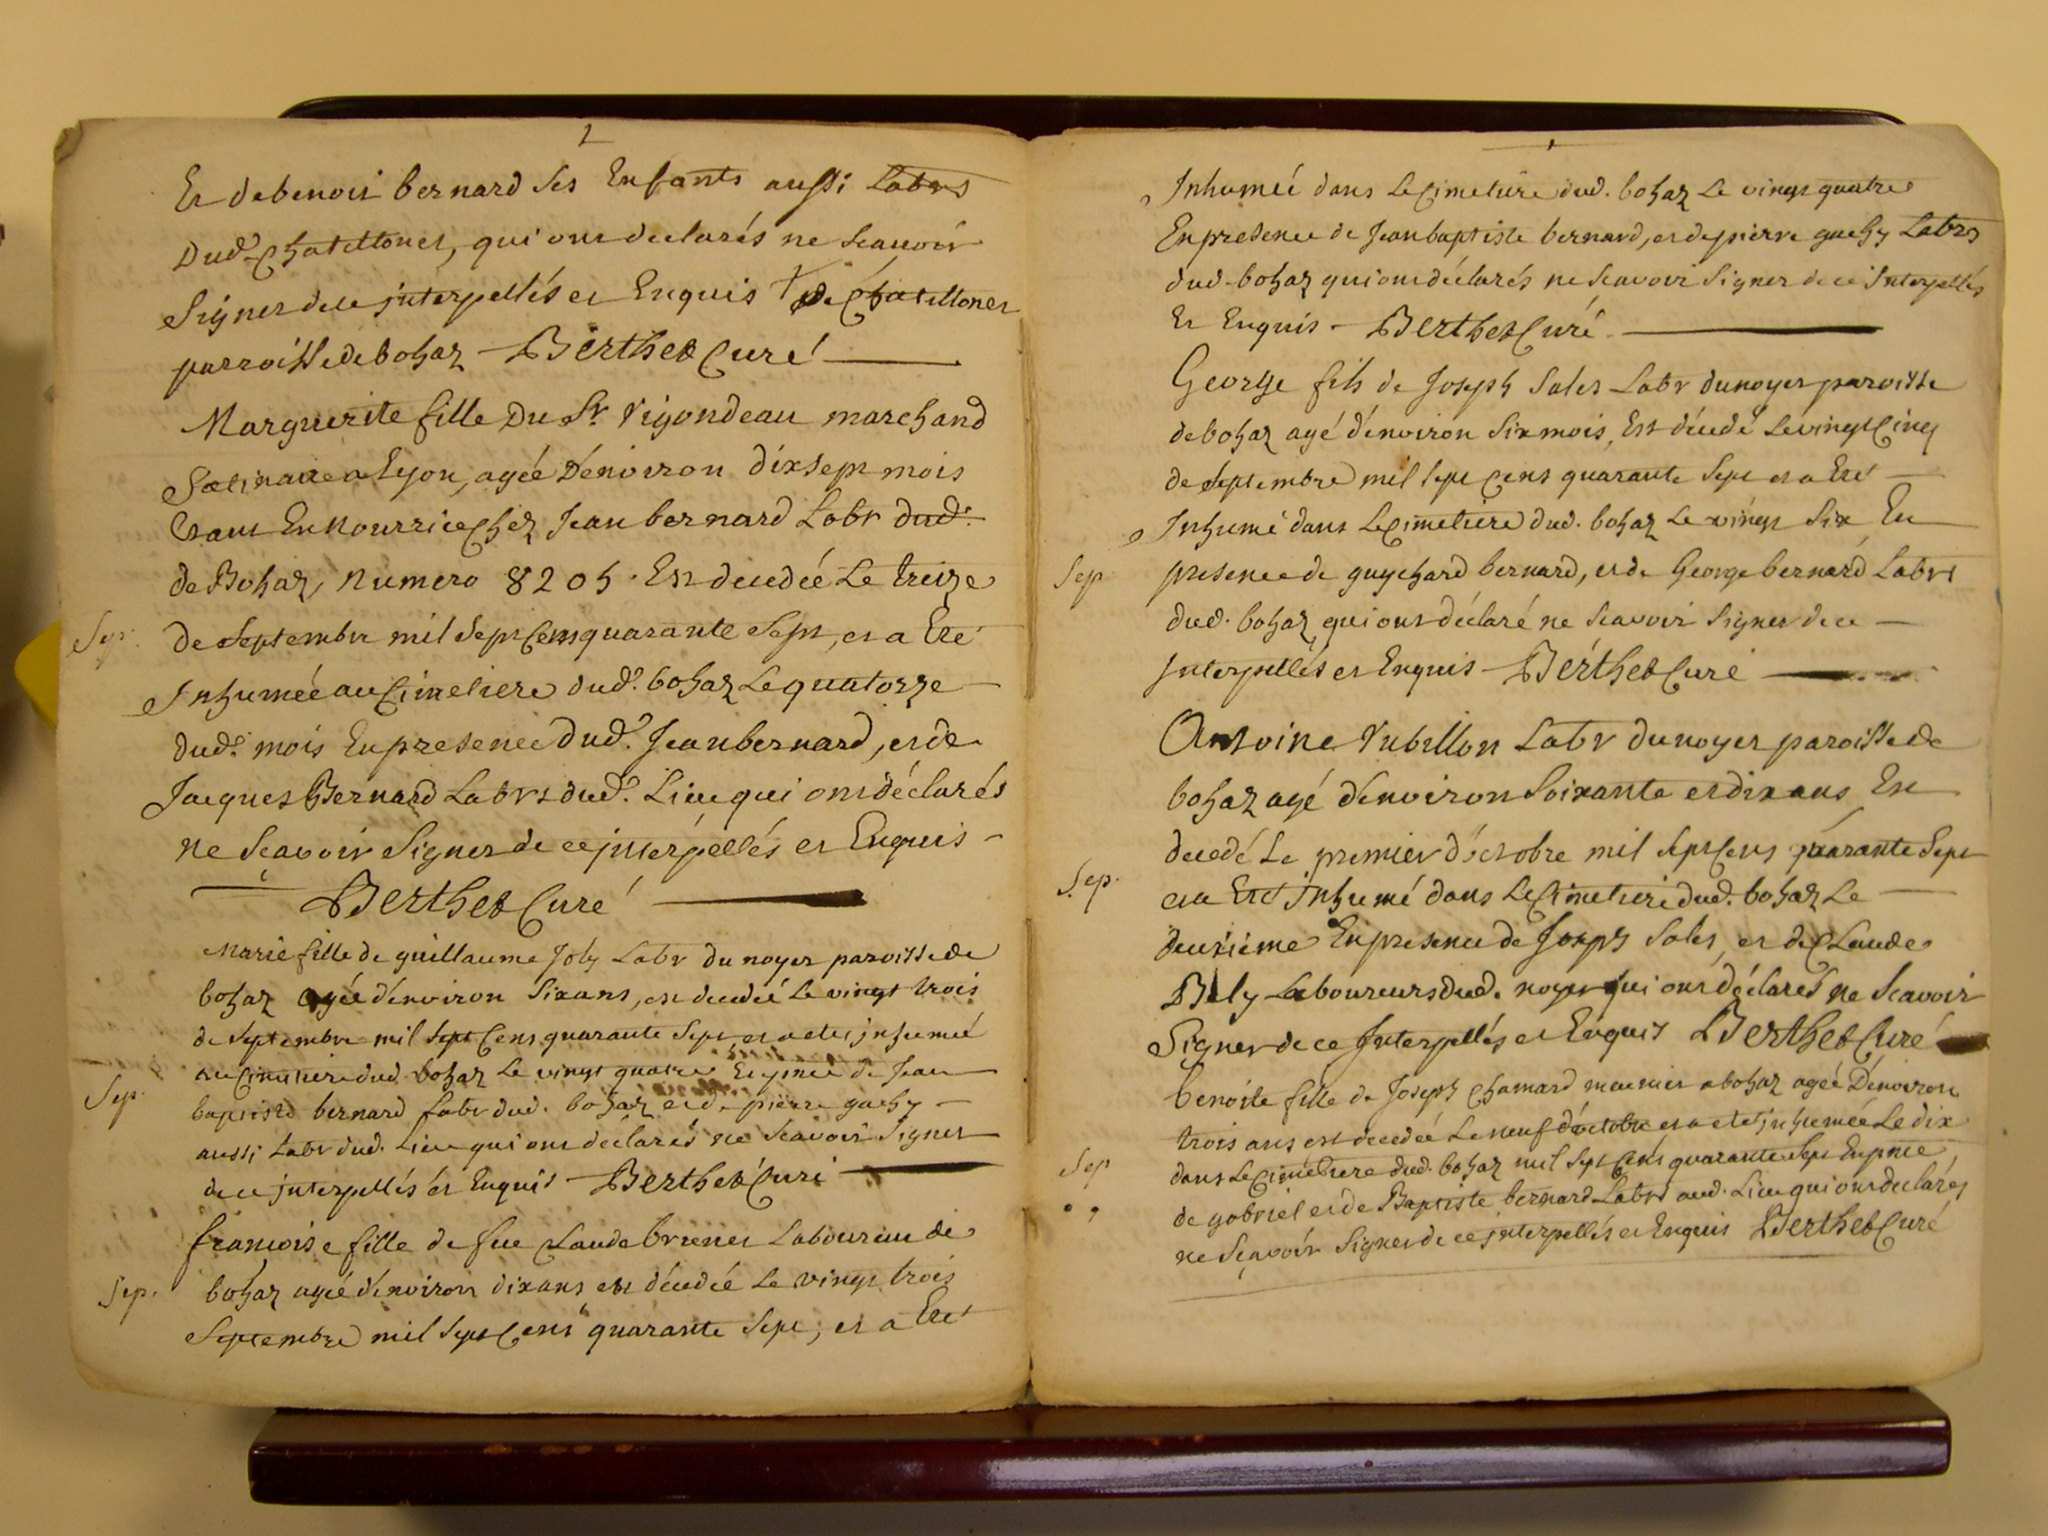 Et de benoit bernard ses Enfants aussi Labrs
Dud. Chatillonet, qui ont declarés ne scauoir
Signer de ce interpellés et Enquis de Chatillonet
parroisse de bohaz Berthet Curé
Marguerite fille Du Sr. Vigondeau marchand
Satinaire a Lyon, agée D'énviron dix sept mois
Etant En Nourrice chéz Jean bernard Labr dud.
de Bohaz, numero 8205. Est decedée Le treize
Sep. de Septembre mil Sept Cent quarante Sept, et a Eté
Inhumée au Cimetiere dud. bohaz Le quatorze
dud. mois En presence dud. Jean bernard, et de
Jacques Bernard Labrs dud. Lieu qui ont déclarés
ne Sçavoir Signer de ce interpellés et Enquis
Berthet Curé
Marie fille de guillaume Joly Labr du noyer paroisse de
bohaz agée d'énviron Six ans, est decedée Le vingt trois
de Septembre mil Sept Cent quarante Sept, et a eté inhumée
au Cimetiere dud. bohaz Le vingt quatre En pnce de Jean
Sep. baptiste bernard Labr dud. bohaz et de pierre guchy
aussi Labr dud. Lieu qui ont déclarés ne Scavoir Signer
de ce interpellés et Enquis Berthet Curé
francoise fille de feu Claude brunet Laboureur de
Sep. bohaz agée d'énviron dix ans est décedée Le vingt trois
Septembre mil Sept Cent quarante Sept, et a Eté
Inhumée dans Le Cimetiere dud. bohaz Le vingt quatre
En presence de Jean baptiste bernard, et de pierre guchy Labrs
dud. bohaz qui ont déclarés ne Scavoir Signer de ce Interpellés
Et Enquis Berthet Curé
George fils de Joseph Sales Labr du noyer paroisse
de bohaz agé d'énviron Six mois, Est décedé Le vingt Cinq
de Septembre mil Sept Cent quarante Sept et a Eté
Inhumé dans Le Cimetiere dud. bohaz Le vingt Six En
Sep presence de guychard bernard, et de George bernard Labrs
dud. bohaz qui ont déclaré ne Scavoir Signer de ce
Interpellés et Enquis Berthet Curé
Antoine Vubillon Labr du noyer paroisse de
bohaz agé d'énviron Soixante et dix ans Est
decedé Le premier d'octobre mil Sept Cent quarante Sept
Sep. et a Eté Inhumé dans Le Cimetiere dud. bohaz Le
deuxiéme En presence de Joseph Sales, et de Claude
Bely Laboureurs dud. noyer qui ont déclarés ne Scavoir
Signer de ce Interpellés et Enquis Berthet Curé
benoite fille de Joseph Chamard meunier a bohaz agée D'énviron
trois ans est decedée Le neuf d'octobre et a eté inhumée Le dix
Sep dans Le Cimétiere dud. bohaz mil Sept Cent quarante Sept En pnce
de gabriel et de Baptiste bernard Labrs aud. Lieu qui ont declarés
ne Sçavoir Signer de ce interpellés et Enquis Berthet Curé